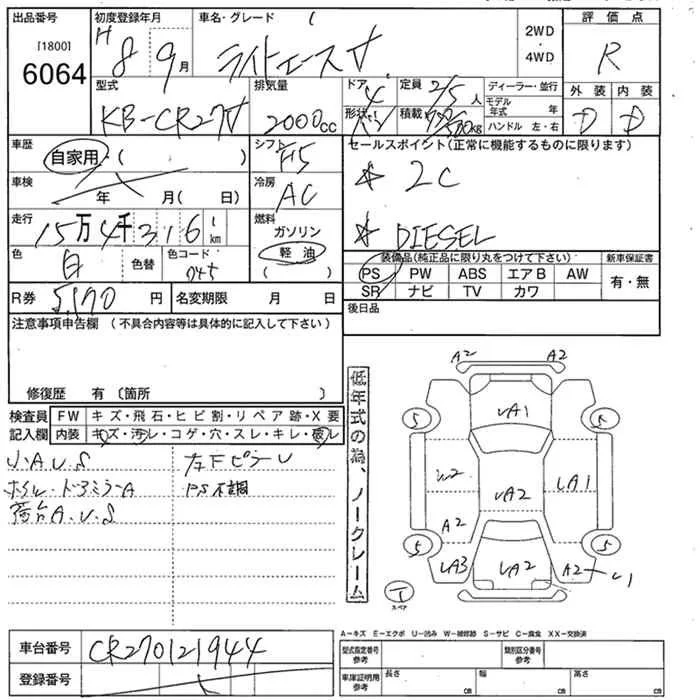 出品番号 初度登録年月 車名・グレード 評価点
[1800] H 8 9月 2WD・4WD R
6064
型式 排気量 ドア 定員 ディーラー・並行 外装 内装
4 2/5人 モデル年式 年
KB-CR27V 2000cc 形状 積載 kg ハンドル 左・右 D D
車歴 自家用・( ) シフト F5 セールスポイント(正常に機能するものに限ります)
車検 年 月(日) 冷房 AC ☆ 2C
走行 15万4千316km 燃料 ガソリン 軽油 ( ) ☆ DIESEL
色 白 色替 色コード 045
装備品(純正品に限り丸をつけて下さい) 新車保証書
PS PW ABS エアB AW 有・無
SR ナビ TV カワ
R券 5,170円 名変期限 月 日 後日品
注意事項申告欄(不具合内容等は具体的に記入して下さい)
修復歴 有〔箇所 〕
検査員記入欄 FW キズ・飛石・ヒビ割・リペア跡・X要
内装 キズ・汚レ・コゲ・穴・スレ・キレ・破レ
U.A.U.S 左Fピラー U
ホイル・ドアミラーA PS不調
荷台A.U.S
低年式の為、ノークレーム
A2 A2
UA1
5 5
W2 UA2 UA1
A2
5 5
UA3 UA2 A2 U1
T
スペア
A－キズ E－エクボ U－凹み W－補修跡 S－サビ C－腐食 XX－交換済
車台番号 CR270121944
登録番号
型式指定番号 参考 類別区分番号 参考
車庫証明用 参考 長さ cm 幅 cm 高さ cm